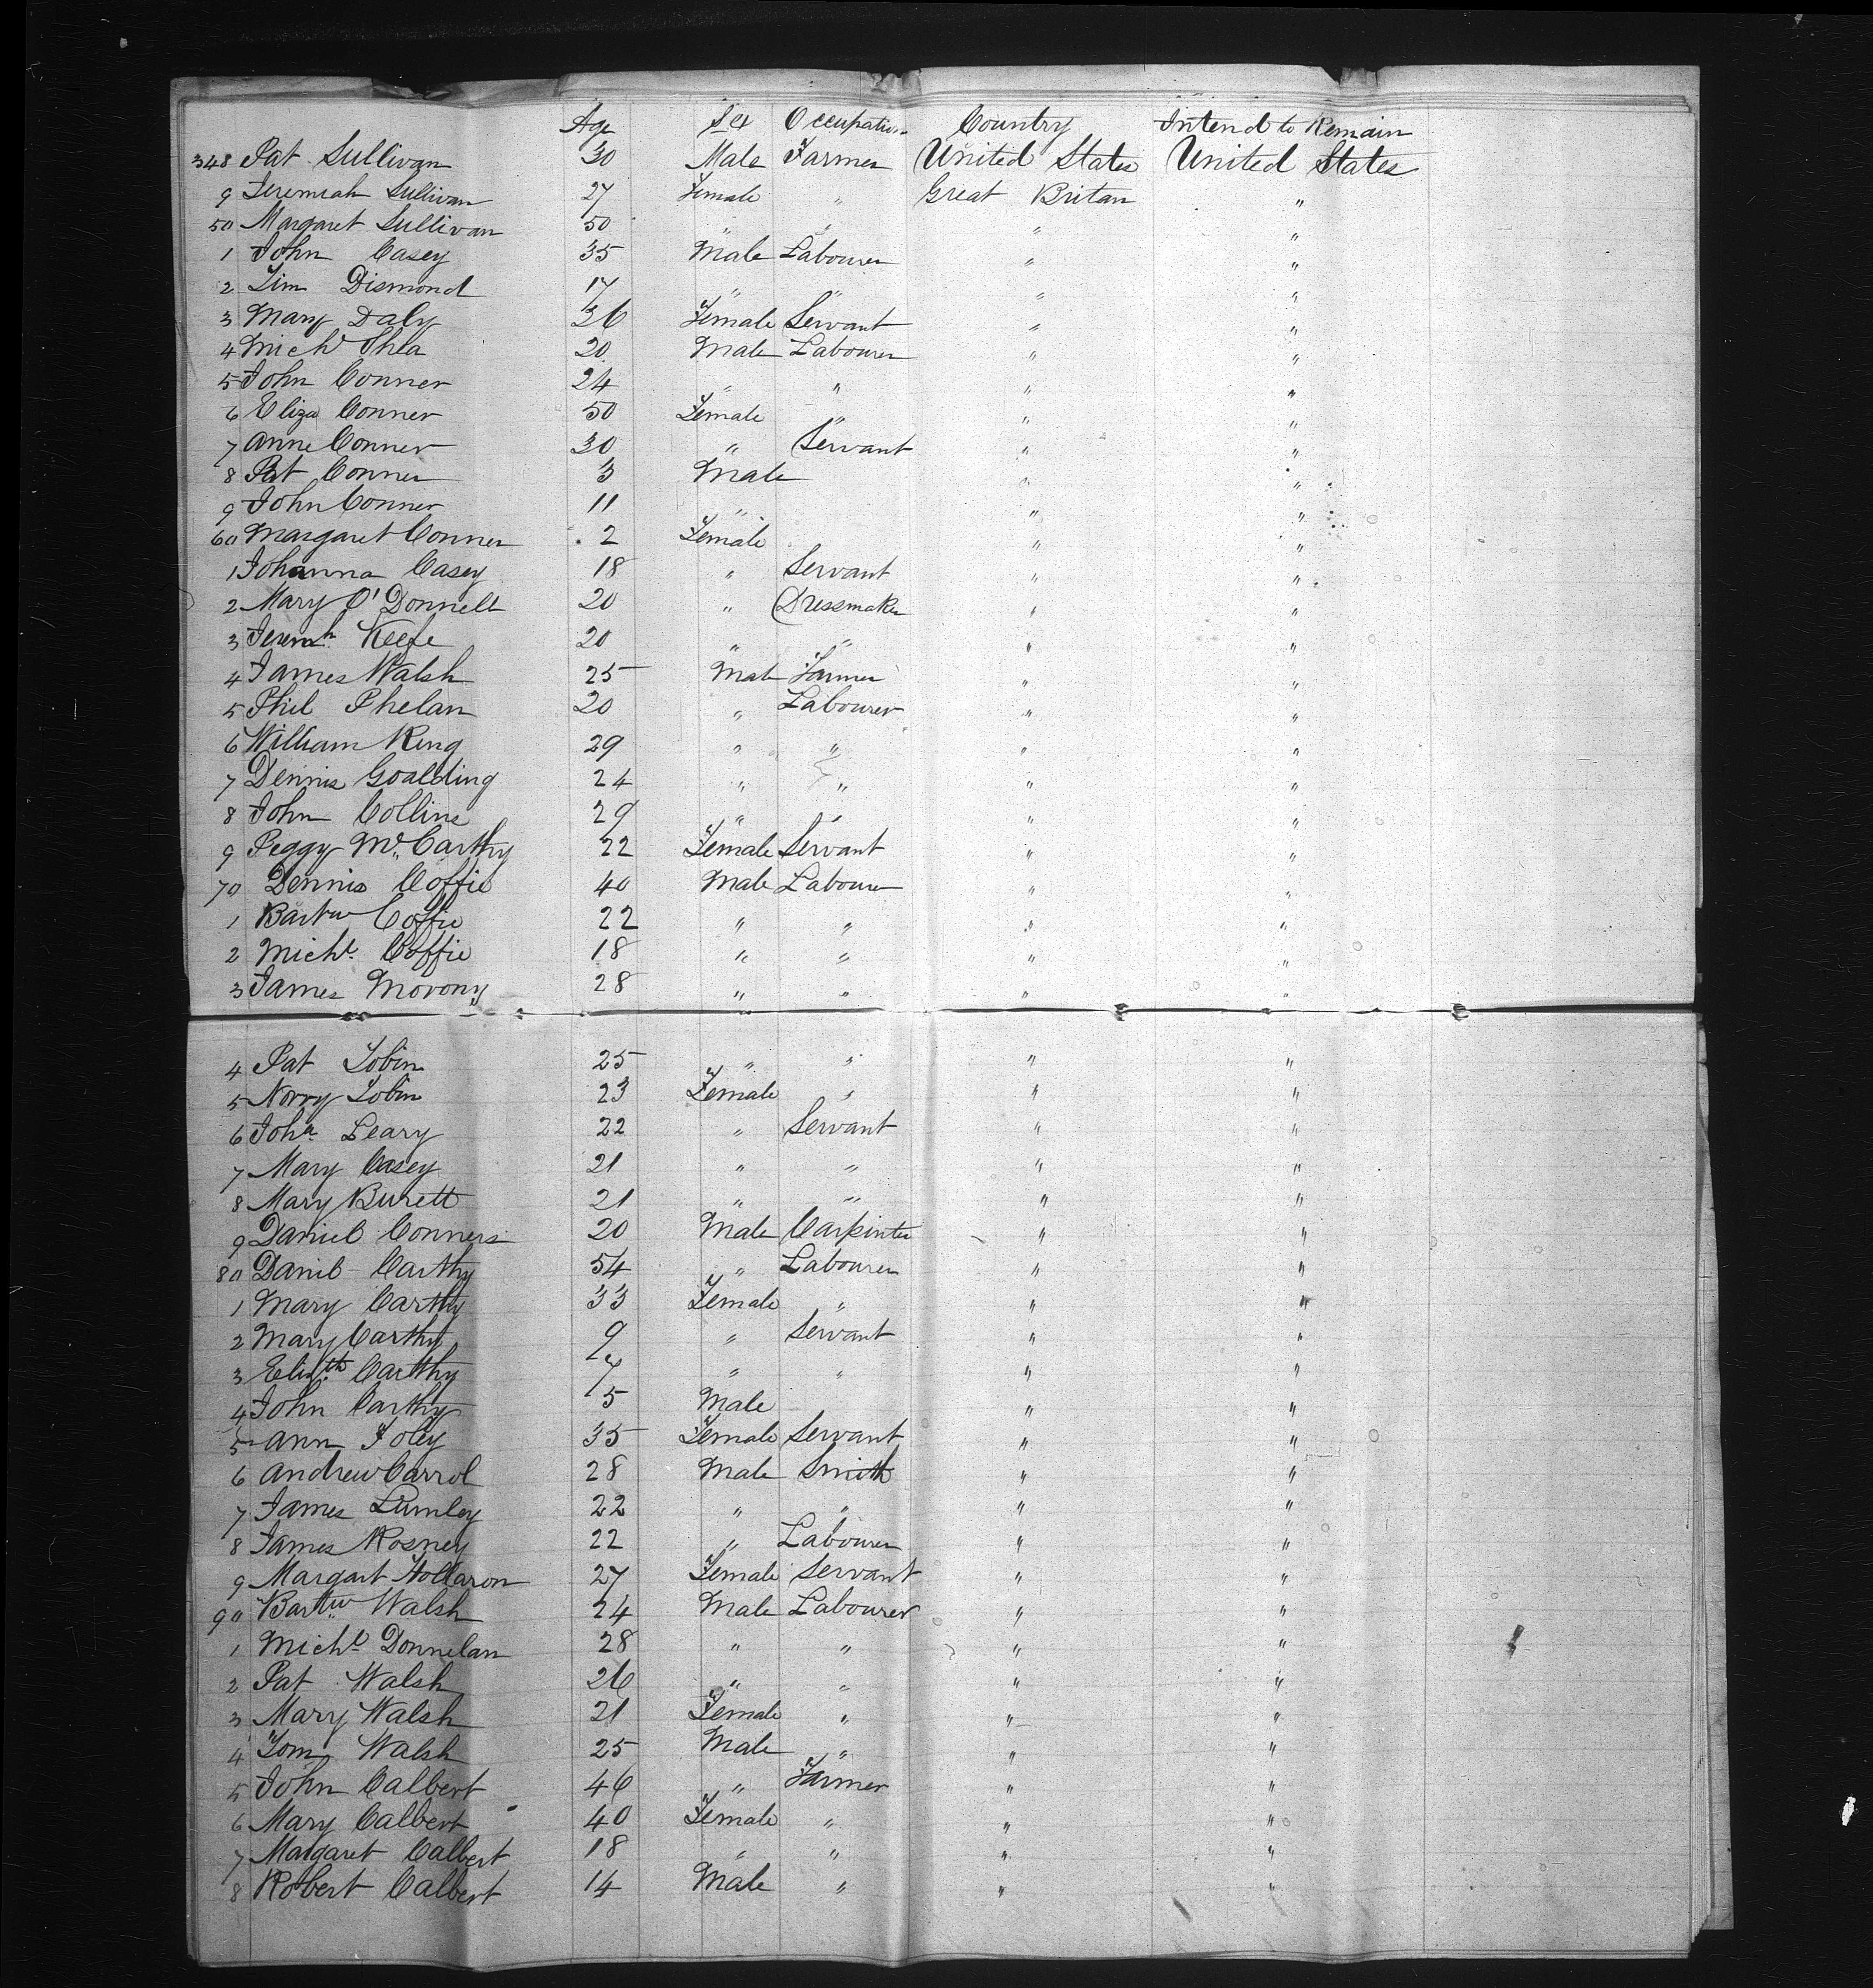 Age Sex Occupation Country Intend to Remain
348 Pat Sullivan 30 Male Farmer United States United States
9 Jeremiah Sullivan 27 Female " Great Britan "
50 Margaret Sullivan 50 " " " "
1 John Casey 35 Male Labourer " "
2 Tim Dismond 17 " " " "
3 Mary Daly 36 Female Servant " "
4 Michl Shea 20 Male Labourer " "
5 John Conner 24 " " " "
6 Eliza Conner 50 Female " " "
7 Anne Conner 30 " Servant " "
8 Pat Conner 3 Male " "
9 John Conner 11 " " "
60 Margaret Conner 2 Female " "
1 Johanna Casey 18 " Servant " "
2 Mary O'Donnell 20 " Dressmaker " "
3 Jeremh Keefe 20 " " " "
4 James Walsh 25 Male Farmer " "
5 Phil Phelan 20 " Labourer " "
6 William King 29 " " " "
7 Dennis Goalding 24 " " " "
8 John Collins 29 " " " "
9 Peggy McCarthy 22 Female Servant " "
70 Dennis Coffie 40 Male Labourer " "
1 Bartw Coffie 22 " " " "
2 Michl Coffie 18 " " " "
3 James Morony 28 " " " "
4 Pat Tobin 25 " " " "
5 Norry Tobin 23 Female " " "
6 Joha Leary 22 " Servant " "
7 Mary Casey 21 " " " "
8 Mary Burett 21 " " " "
9 Daniel Conners 20 Male Carpinter " "
80 Danil Carthy 54 " Labourer " "
1 Mary Carthy 33 Female " " "
2 Mary Carthy 9 " Servant " "
3 Elizth Carthy 7 " " " "
4 John Carthy 5 Male " "
5 Ann Foley 35 Female Servant " "
6 Andrew Carrol 28 Male Smith " "
7 James Lumley 22 " " " "
8 James Rosney 22 " Labourer " "
9 Margart Hollaron 27 Female Servant " "
90 Bartw Walsh 24 Male Labourer " "
1 Michl Donnelan 28 " " " "
2 Pat Walsh 26 " " " "
3 Mary Walsh 21 Female " " "
4 Tom Walsh 25 Male " " "
5 John Calbert 46 " Farmer " "
6 Mary Calbert 40 Female " " "
7 Margaret Calbert 18 " " " "
8 Robert Calbert 14 Male " " "